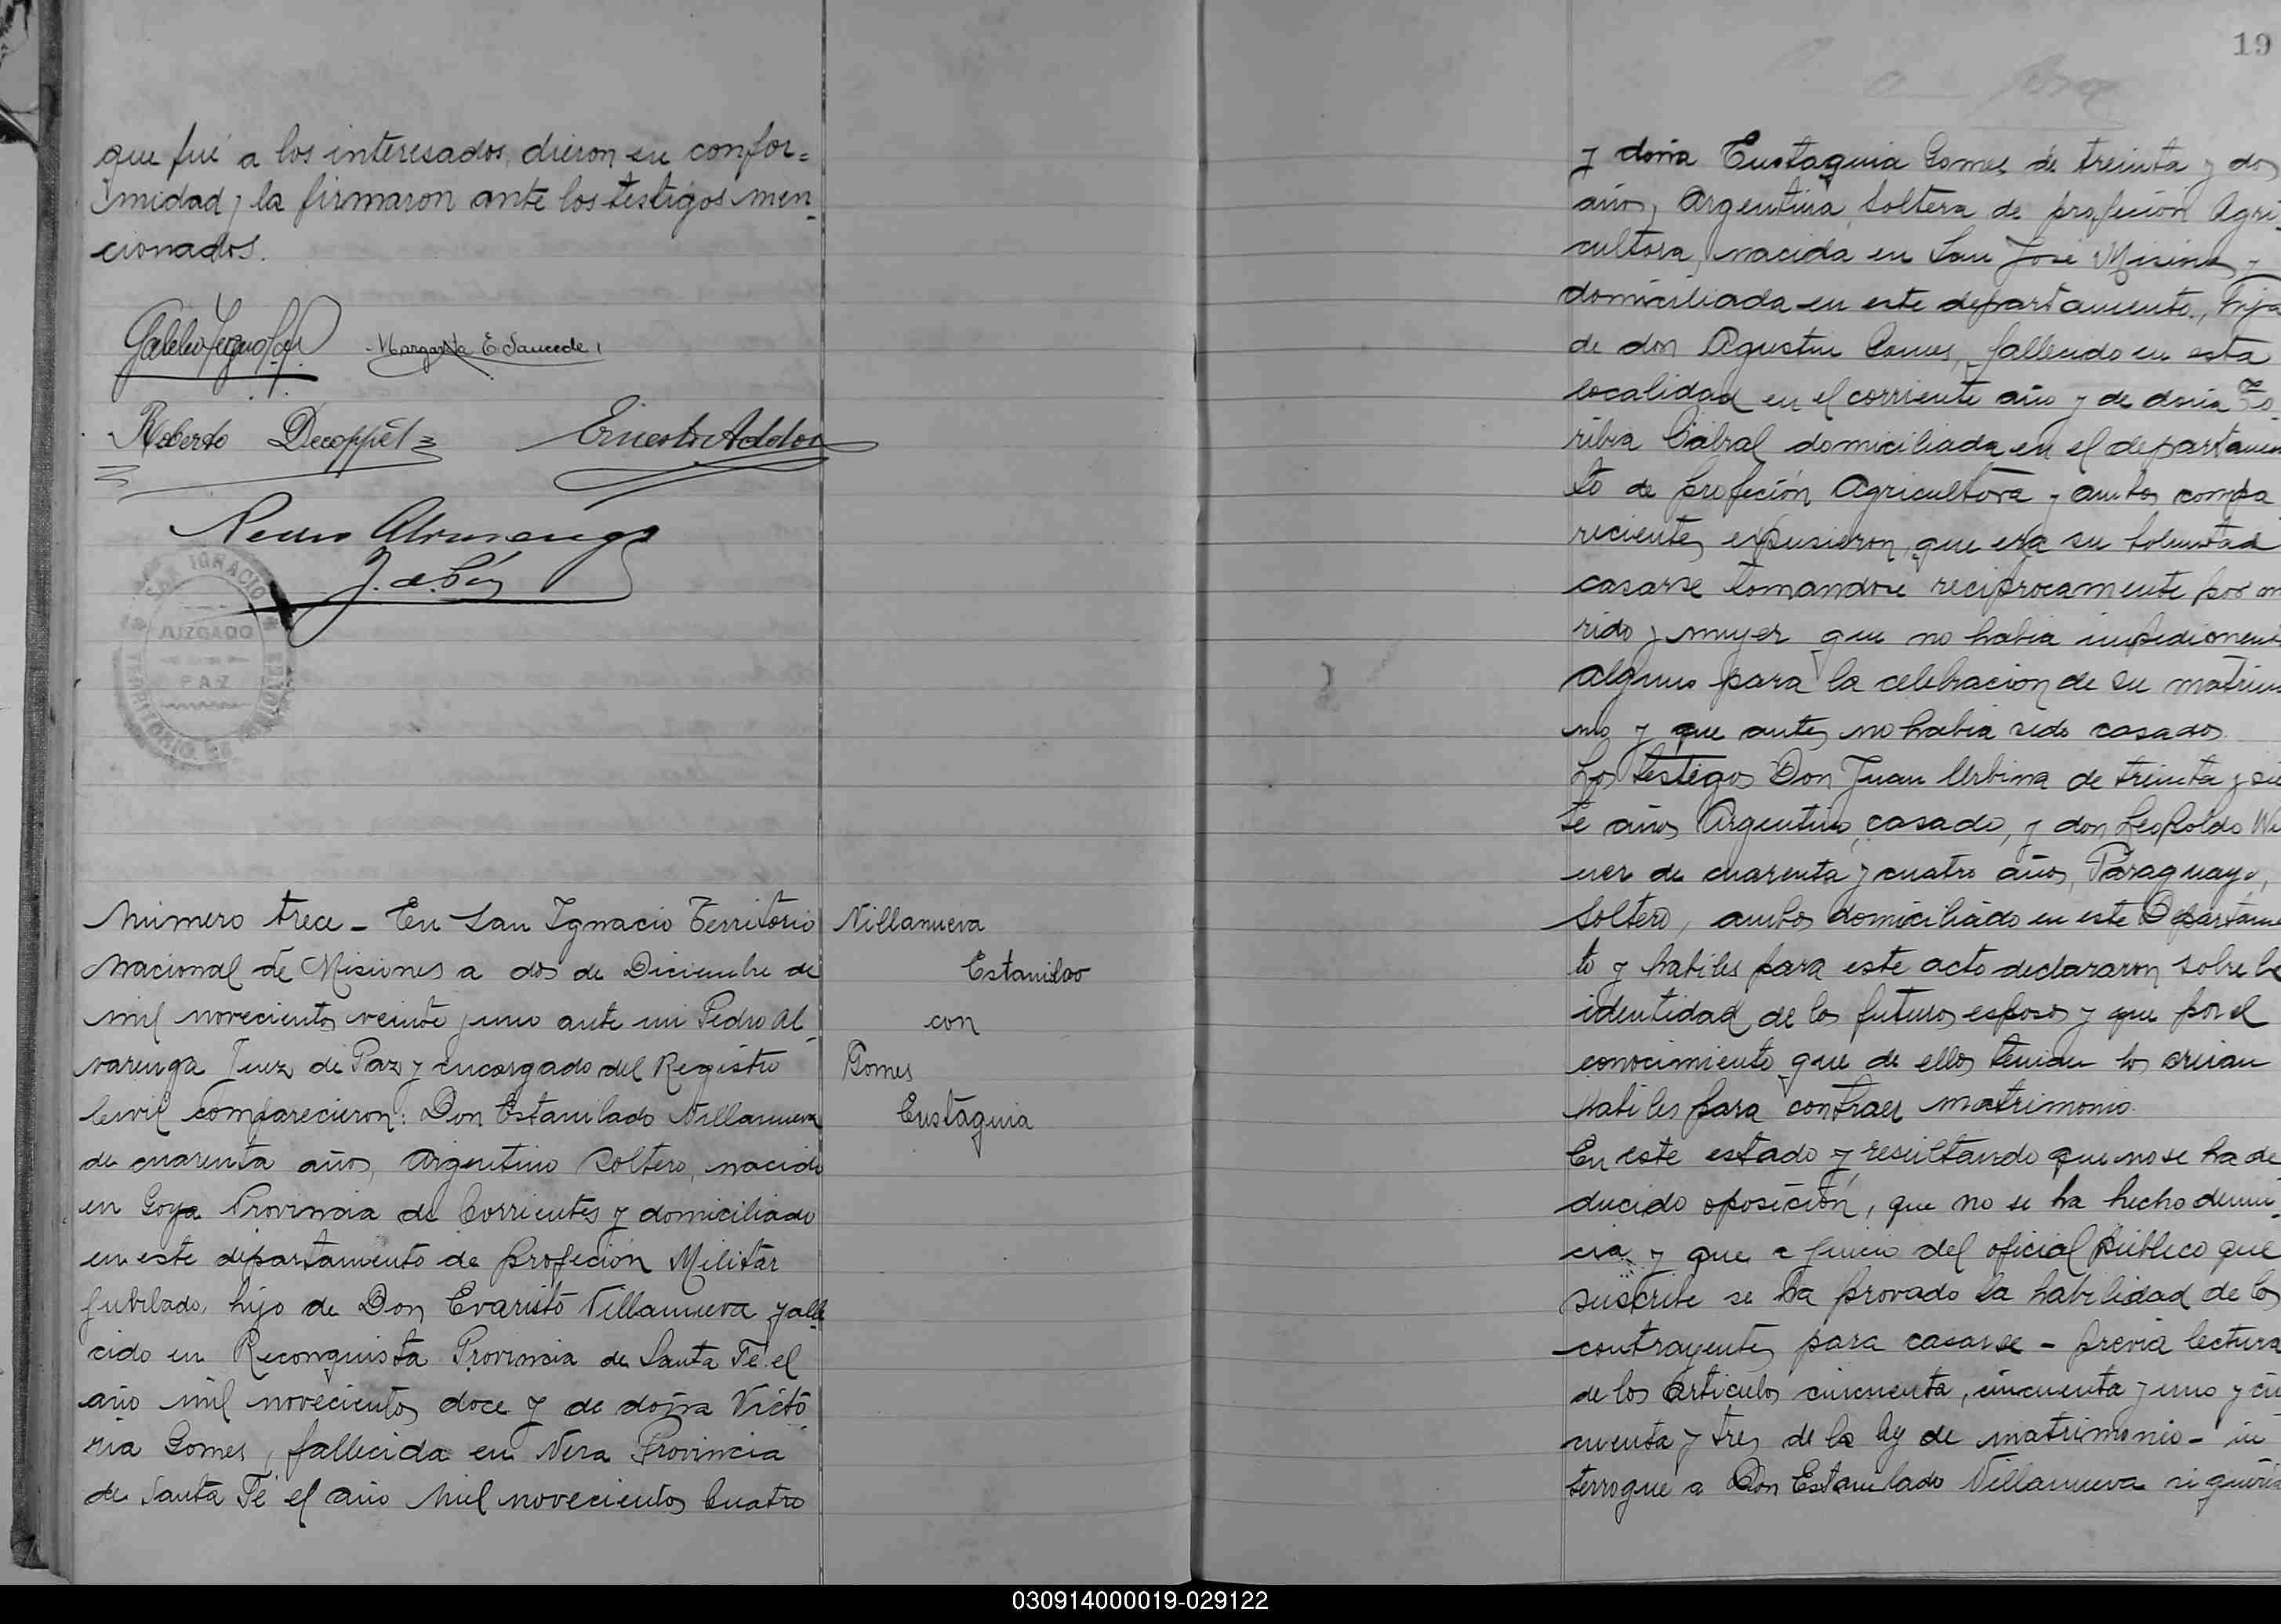 que fué a los interesados, dieron su confor=
midad y la firmaron ante los testigos men-
cionados.
Margarita E. Saucedo
Roberto Decoppet
Ernesto Addor
Pedro Alvarenga
J. de Paz
SAN IGNACIO
JUZGADO
PAZ
TERRITORIO DE MISIONES
Número trece - En San Ignacio Territorio
Nacional de Misiones a dos de Diciembre de
mil novecientos veinte y uno ante mi Pedro Al-
varenga Juez de Paz y encargado del Registro
Civil comparecieron: Don Estanilado Villanueva
de cuarenta años, Argentino Soltero, nacido
en Goya Provincia de Corrientes y domiciliado
en este departamento de profeción Militar
Jubilado, hijo de Don Evaristo Villanueva falle
cido en Reconquista Provincia de Santa Fé el
año mil novecientos doce y de doña Victo
ria Gomes, fallecida en Vera Provincia
de Santa Fé el año mil novecientos Cuatro
Villanueva
Estanilao
con
Gomes
Eustaquia
19
y doña Eustaquia Gomes de treinta y dos
años, Argentina Soltera de profeción Agri-
cultora, nacida en San José Misiones y
domiciliada en este departamento, hija
de don Agustin Gomes, fallecido en esta
localidad en el corriente año y de doña To-
ribia Cabral domiciliada en el departamen
to de profeción Agricultora y ambos compa
recientes expusieron que era su boluntad
casarse tomandose reciprocamente por ma
rido y mujer que no habia impedimento
alguno para la celebracion de su matrimo
nio y que antes no habia sido casados
Los testigos Don Juan Urbina de treinta y sie
te años Argentino, casado, y don Leopoldo
ner de cuarenta y cuatro años, Paraguayo,
Soltero, ambos domiciliado en este Departame
to y habiles para este acto declararon sobre la
identidad de los futuros esposos y que por el
conocimiento que de ellos tenian los creian
habiles para contraer matrimonio.
En este estado y resultando que no se ha de
ducido oposición, que no se ha hecho denun-
cia y que a juicio del oficial público que
suscribe se ha provado la habilidad de los
contrayentes para casarse - previa lectura
de los articulos cincuenta, cincuenta y uno y cin
cuenta y tres de la ley de matrimonio - in
terrogue a Don Estanilado Villanueva si queria
030914000019-029122